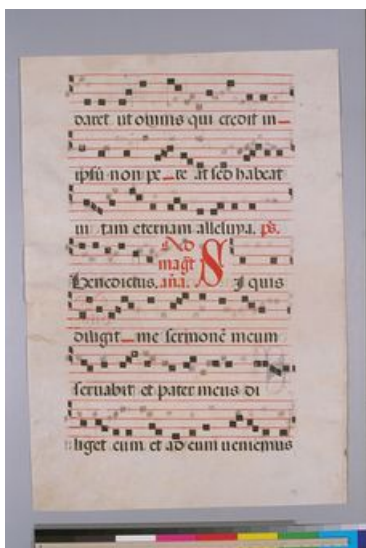 daret ut omnis qui credit in
ipsū non pe re at sed habeat
vi tam eternam alleluya. ps.
Benedictus. Ad magt̄ ana. Si quis
diligit me sermonē meum
servabit et pater meus di
liget eum et ad eum veniemus